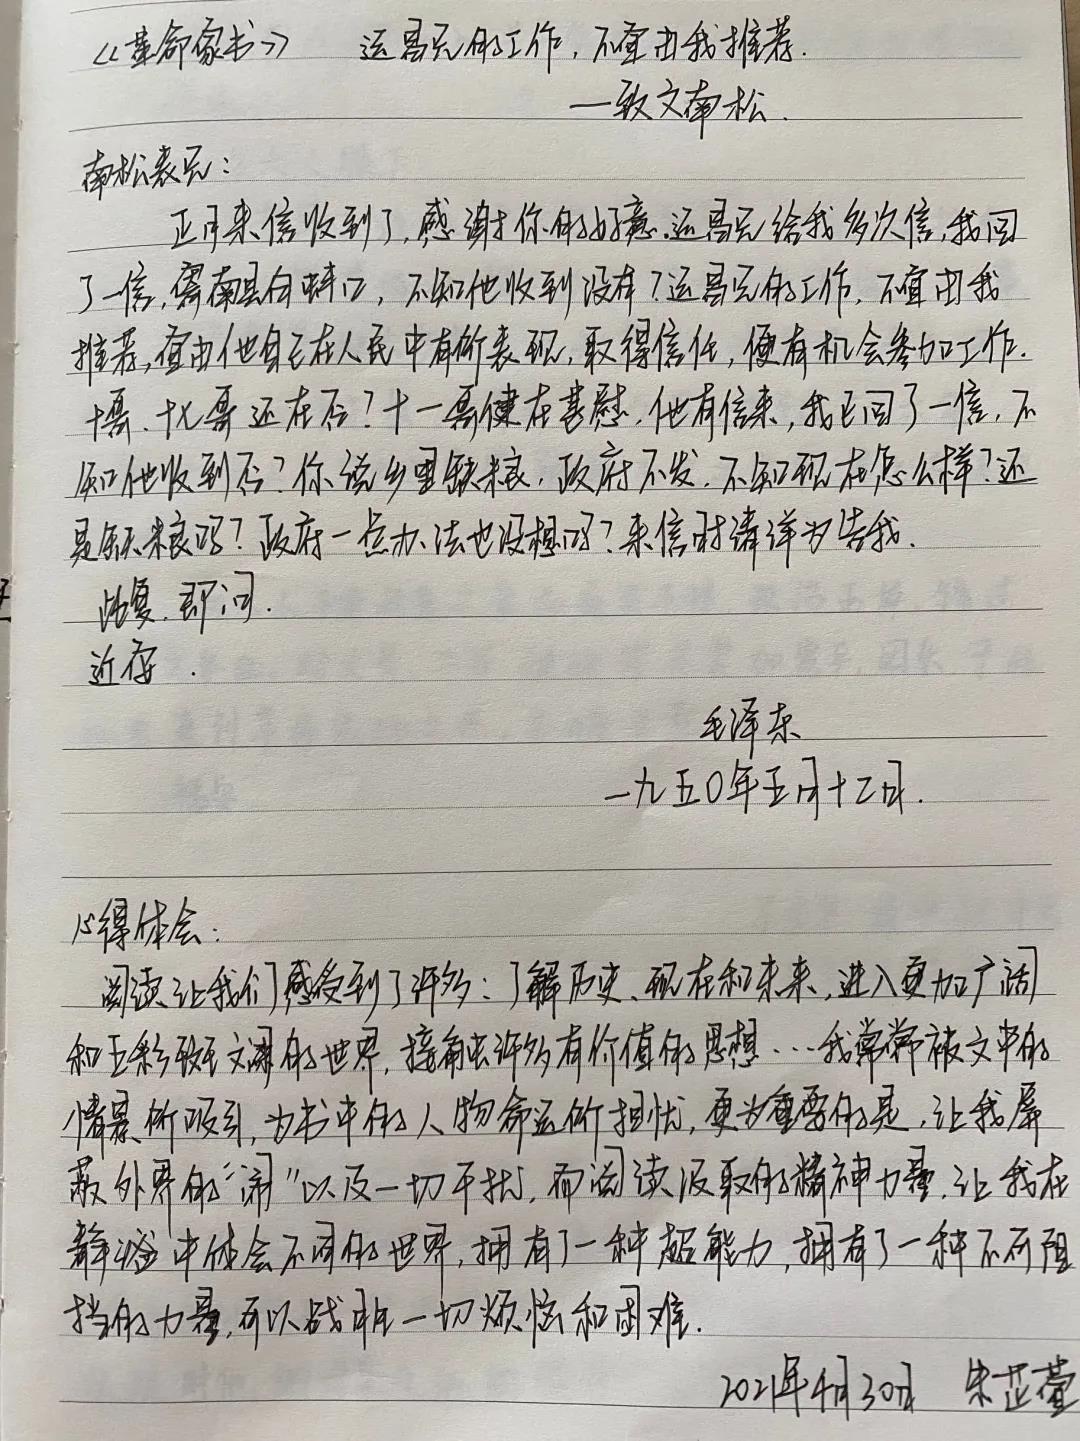 《革命家书》 运昌兄的工作，不宜由我推荐.
—致文南松.
南松表兄：
正月来信收到了，感谢你的好意.运昌兄给我多次信，我回
了一信，寄南县白蚌口，不知他收到没有？运昌兄的工作，不宜由我
推荐，宜由他自己在人民中有所表现，取得信任，便有机会参加工作.
十哥、十七哥还在否？十一哥健在甚慰，他有信来，我已回了一信，不
知他收到否？你说乡里缺粮，政府不发，不知现在怎么样？还
是缺粮吗？政府一点办法也没想吗？来信时请详为告我.
此复.即问.
近好.
毛泽东
一九五〇年五月十二日.
心得体会：
阅读让我们感受到了许多：了解历史、现在和未来，进入更加广阔
和五彩斑斓的世界，接触出许多有价值的思想…我常常被文中的
情景所吸引，为书中的人物命运所担忧，更为重要的是，让我屏
蔽外界的“闹”以及一切干扰，而阅读汲取的精神力量，让我在
静谧中体会不同的世界，拥有了一种超能力，拥有了一种不可阻
挡的力量，可以战胜一切烦恼和困难.
2021年4月30日 朱芷萱